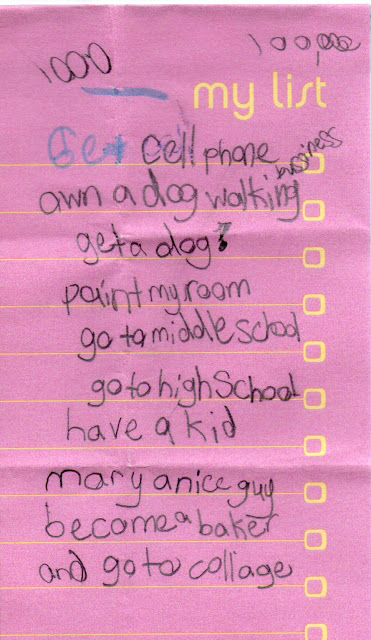 1000
100,000
my list
Get cell phone
own a dog walking business
get a dog!
paint my room
go to middle school
go to high School
have a kid
mary a nice guy
become a baker
and go to collage